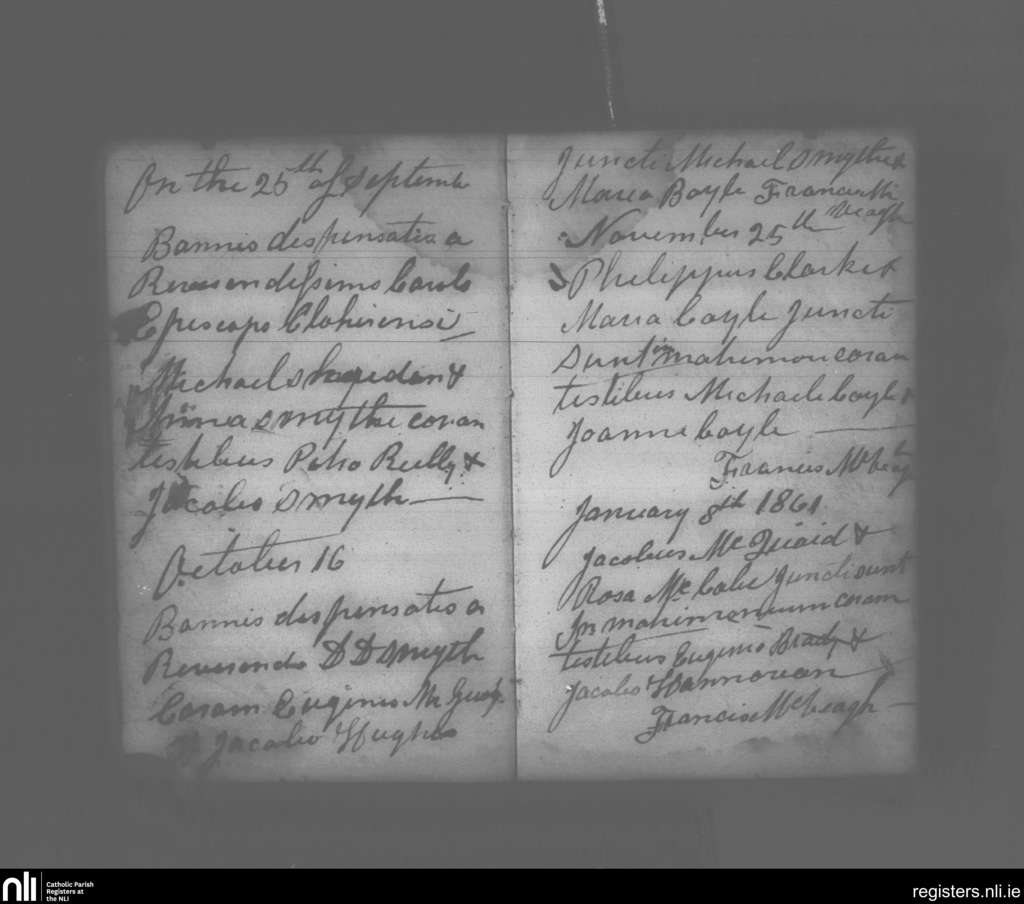 On the 25th of Septemb
Bannis dispensatis a
Reverendissimo Carolo
Episcopo Clohirensi
Michael Sheridan &
Anna Smythe coram
testibus Petro Reilly &
Jacobo Smyth
October 16
Bannis dispensatis a
Reverendo D D Smyth
Coram Eugenio Mc
& Jacobo Hughes
Juncti Michael Smythe &
Maria Boyle Francis Mc
Veagh
November 25th
Philippus Clarke &
Maria Coyle Juncti
Sunt in matrimon coram
testibus Michaele Coyle &
Joanne Coyle
Francis McVeagh
January 8th 1861
Jacobus Mc Quaid &
Rosa Mc Cabe Juncti sunt
In matrimonium coram
testibus Eugenio Brady &
Jacobo Hannovan
Francis McVeagh
nli
Catholic Parish
Registers at
the NLI
registers.nli.ie